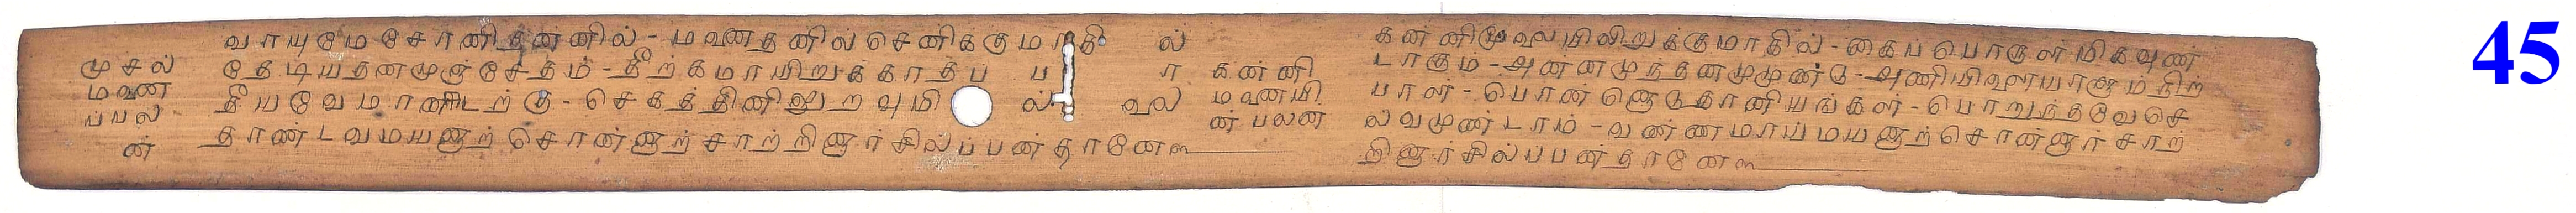 முசல்
மனை
ப்பல
ன்
வாயுமேசேரணிதன்னில் - மனைதனில் செனிக்குமாகி ல்
தேடியதனமுஞ்சேதம் - தீற்கமாயிறுக்காதப் ப ா
தீயவேமானிடற்கு - செகத்தினிலுறவுமி ல் லை
தாண்டவமயனார் சொன்னார் சாற்றினார் சில்ப்பன்தானே
கன்னி
மனையி
ன் பலன
கன்னிமூலையிலிறுக்குமாகில் - கைபபொருள் மிகவுண்
டாகும் - அன்னமுந்தனமுமுண்டு - அணியிழையாளும் நிற்
பாள் - பொன்னொடுதானியங்கள் - பொறுந்தவே செ
ல்வமுண்டாம் - வண்ணமாய் மயனார் சொன்னார் சாற்
றினார் சில்ப்பன்தானே